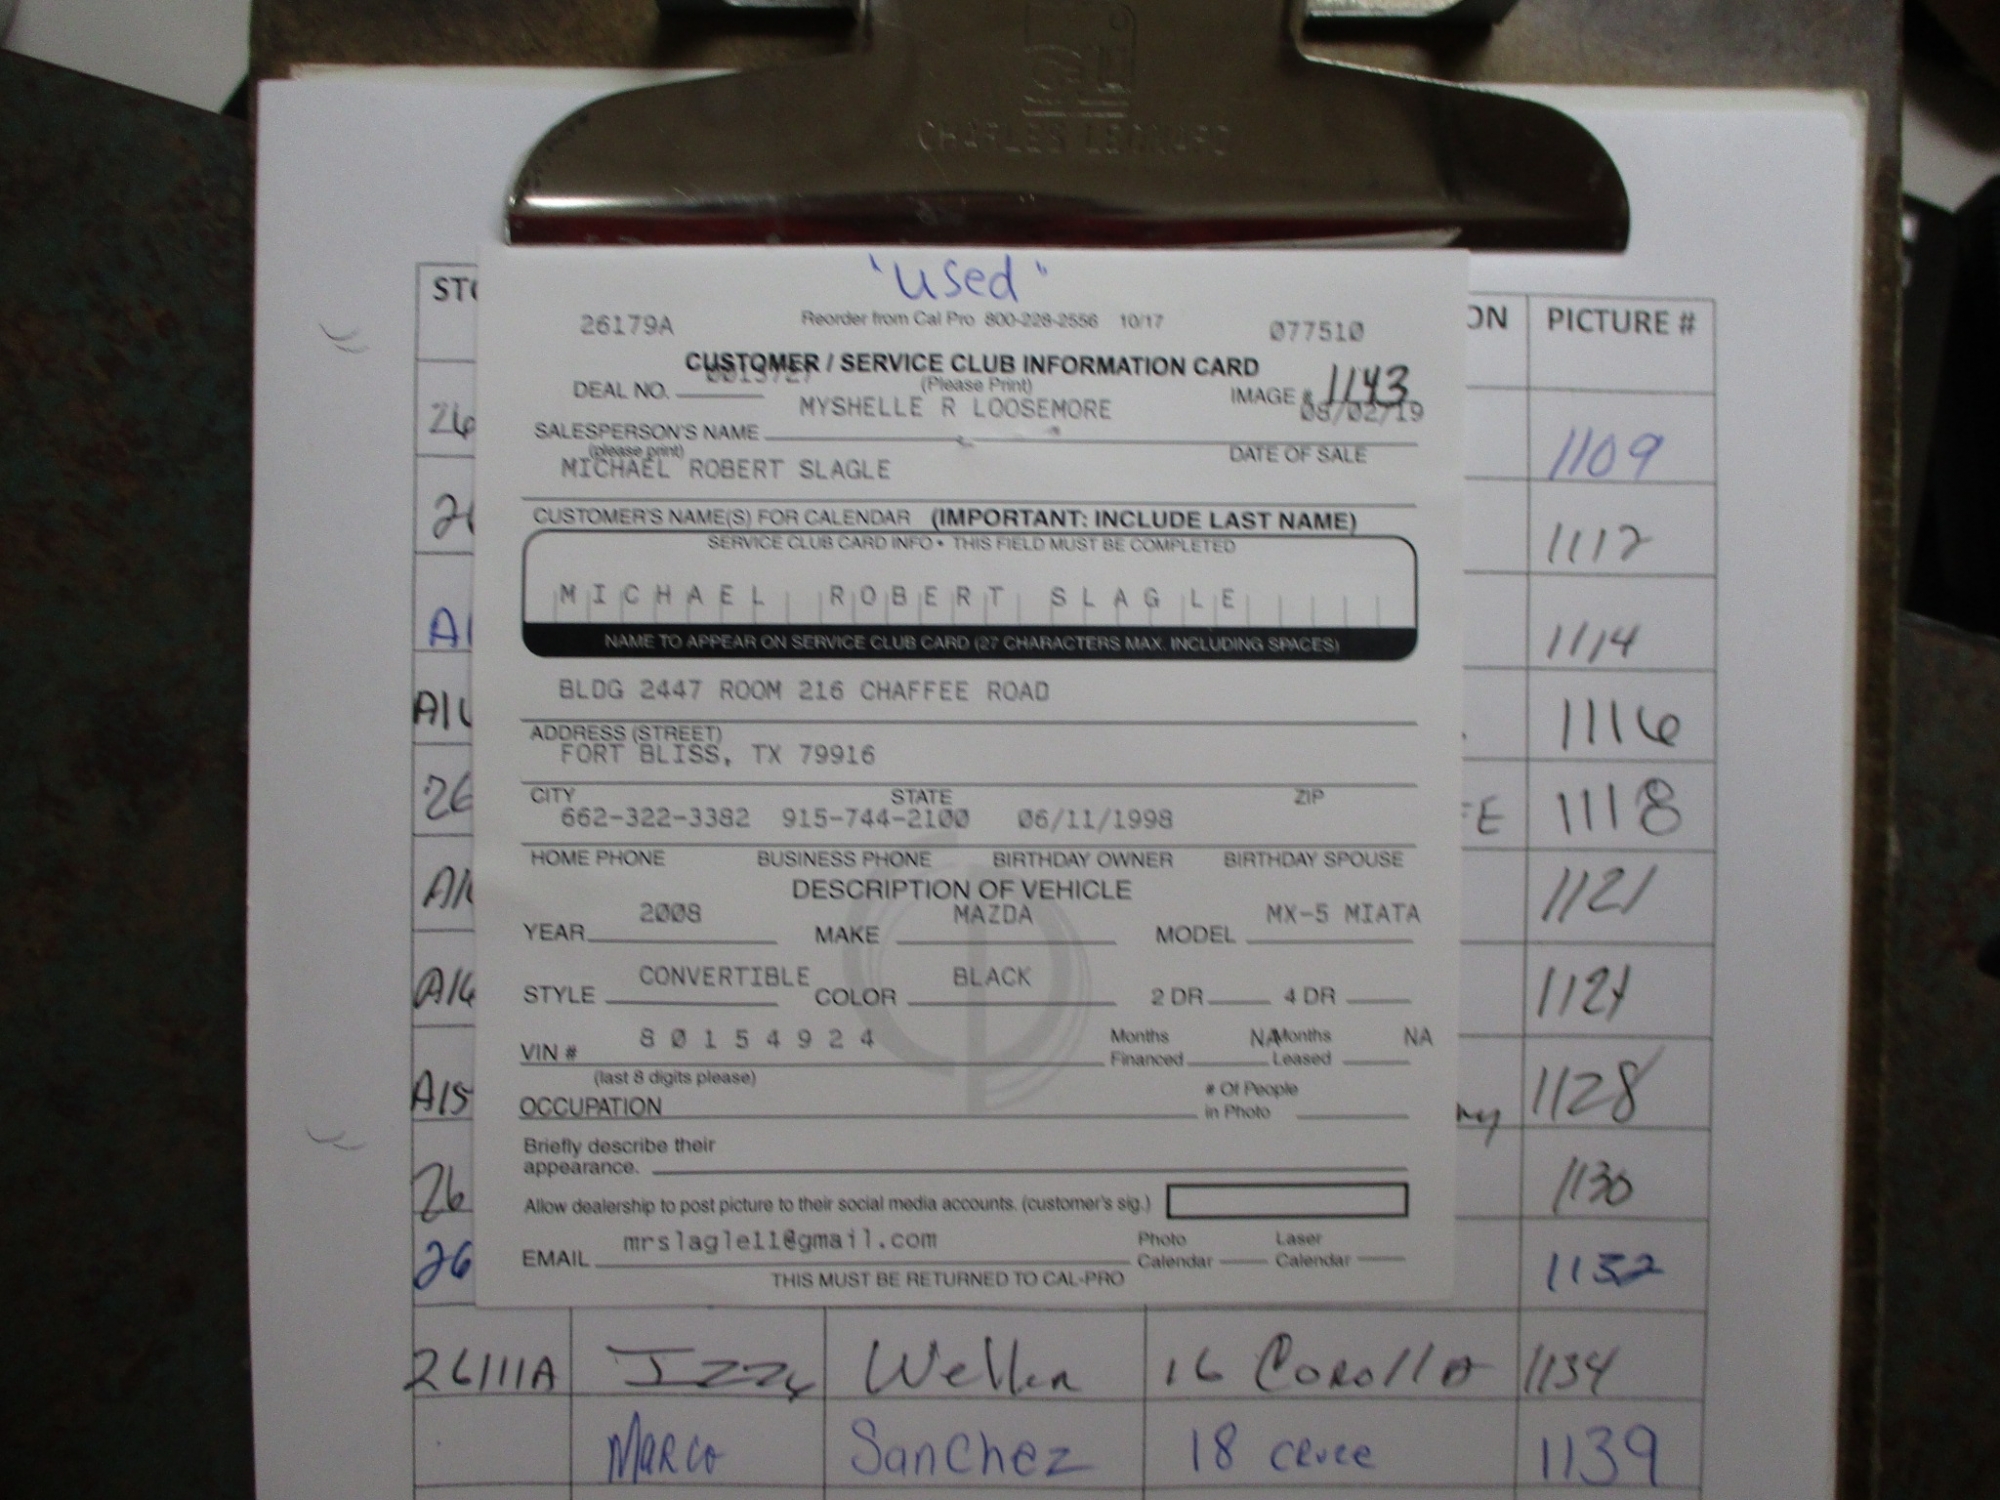 CHARLES LEONARD
"used"
26179A Reorder from Cal Pro 800-228-2556 10/17 077510
CUSTOMER / SERVICE CLUB INFORMATION CARD
DEAL NO. (Please Print) IMAGE # 1143
MYSHELLE R LOOSEMORE 08/02/19
SALESPERSON'S NAME
(please print) DATE OF SALE
MICHAEL ROBERT SLAGLE
CUSTOMER'S NAME(S) FOR CALENDAR (IMPORTANT: INCLUDE LAST NAME)
SERVICE CLUB CARD INFO • THIS FIELD MUST BE COMPLETED
MICHAEL ROBERT SLAGLE
NAME TO APPEAR ON SERVICE CLUB CARD (27 CHARACTERS MAX. INCLUDING SPACES)
BLDG 2447 ROOM 216 CHAFFEE ROAD
ADDRESS (STREET)
FORT BLISS, TX 79916
CITY STATE ZIP
662-322-3382 915-744-2100 06/11/1998
HOME PHONE BUSINESS PHONE BIRTHDAY OWNER BIRTHDAY SPOUSE
DESCRIPTION OF VEHICLE
YEAR 2008 MAKE MAZDA MODEL MX-5 MIATA
STYLE CONVERTIBLE COLOR BLACK 2 DR 4 DR
VIN # 80154924 Months Financed NA Months Leased NA
(last 8 digits please)
OCCUPATION # Of People in Photo
Briefly describe their
appearance.
Allow dealership to post picture to their social media accounts. (customer's sig.)
EMAIL mrslagle11@gmail.com Photo Calendar Laser Calendar
THIS MUST BE RETURNED TO CAL-PRO
STO ON PICTURE #
26 1109
26 1112
A1 1114
A16 1116
26 FE 1118
A16 1121
A16 1124
A15 ny 1128
26 1130
26 1132
26111A Izzy Weller 16 Corolla 1134
Marco Sanchez 18 Cruce 1139